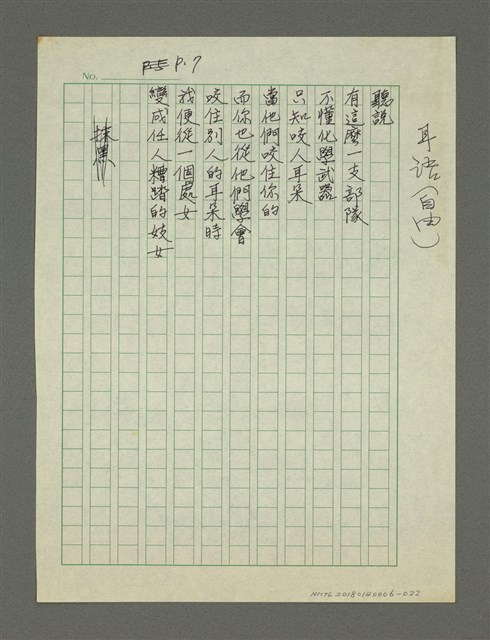 耳语(自由)
No.
P.7
聽說
有這麼一支部隊
不懂化學武器
只知咬人耳朵
當他們咬住你的
而你也從他們學會
咬住別人的耳朵時
我便從一個處女
變成任人糟踏的妓女
抹黑
NMTL20180140006-022